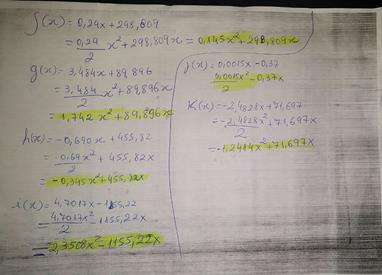 f(x)=0,29x+298,809
=0,29/2 x²+298,809x = 0,145x²+298,809x
g(x)=3,484x+89,896
=3,484/2 x²+89,896x
=1,742 x²+89,896x
h(x)=-0,690x+455,82
=-0,69/2 x²+455,82x
=-0,345x²+455,82x
i(x)=4,7017x-1155,22
=4,7017x²/2-1155,22x
=2,3508x²-1155,22x
j(x)=0,0015x-0,37
0,0015x²/2-0,37x
K(x)=-2,4828x+71,697
=-2,4828/2 x²+71,697x
=-1,2414x²+71,697x